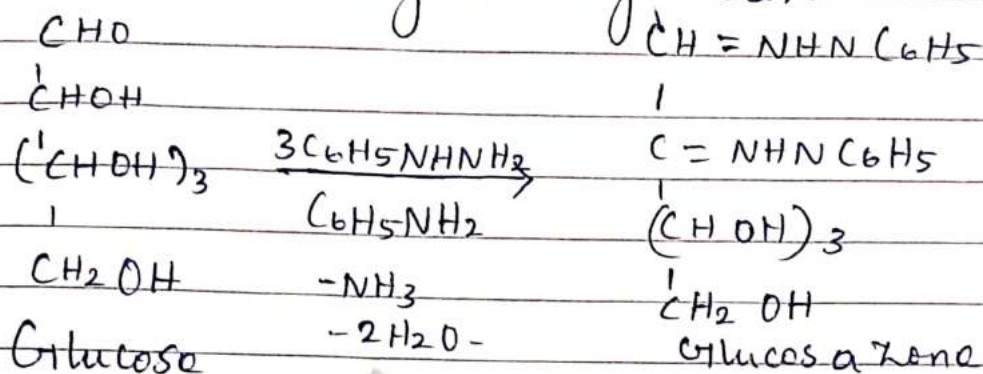 CHO
CHOH
(CHOH)3
CH2 OH
Glucose
3C6H5NHNH2
C6H5NH2
-NH3
-2H2O-
CH = NHN C6H5
C = NHN C6H5
(CH OH) 3
CH2 OH
Glucosazone